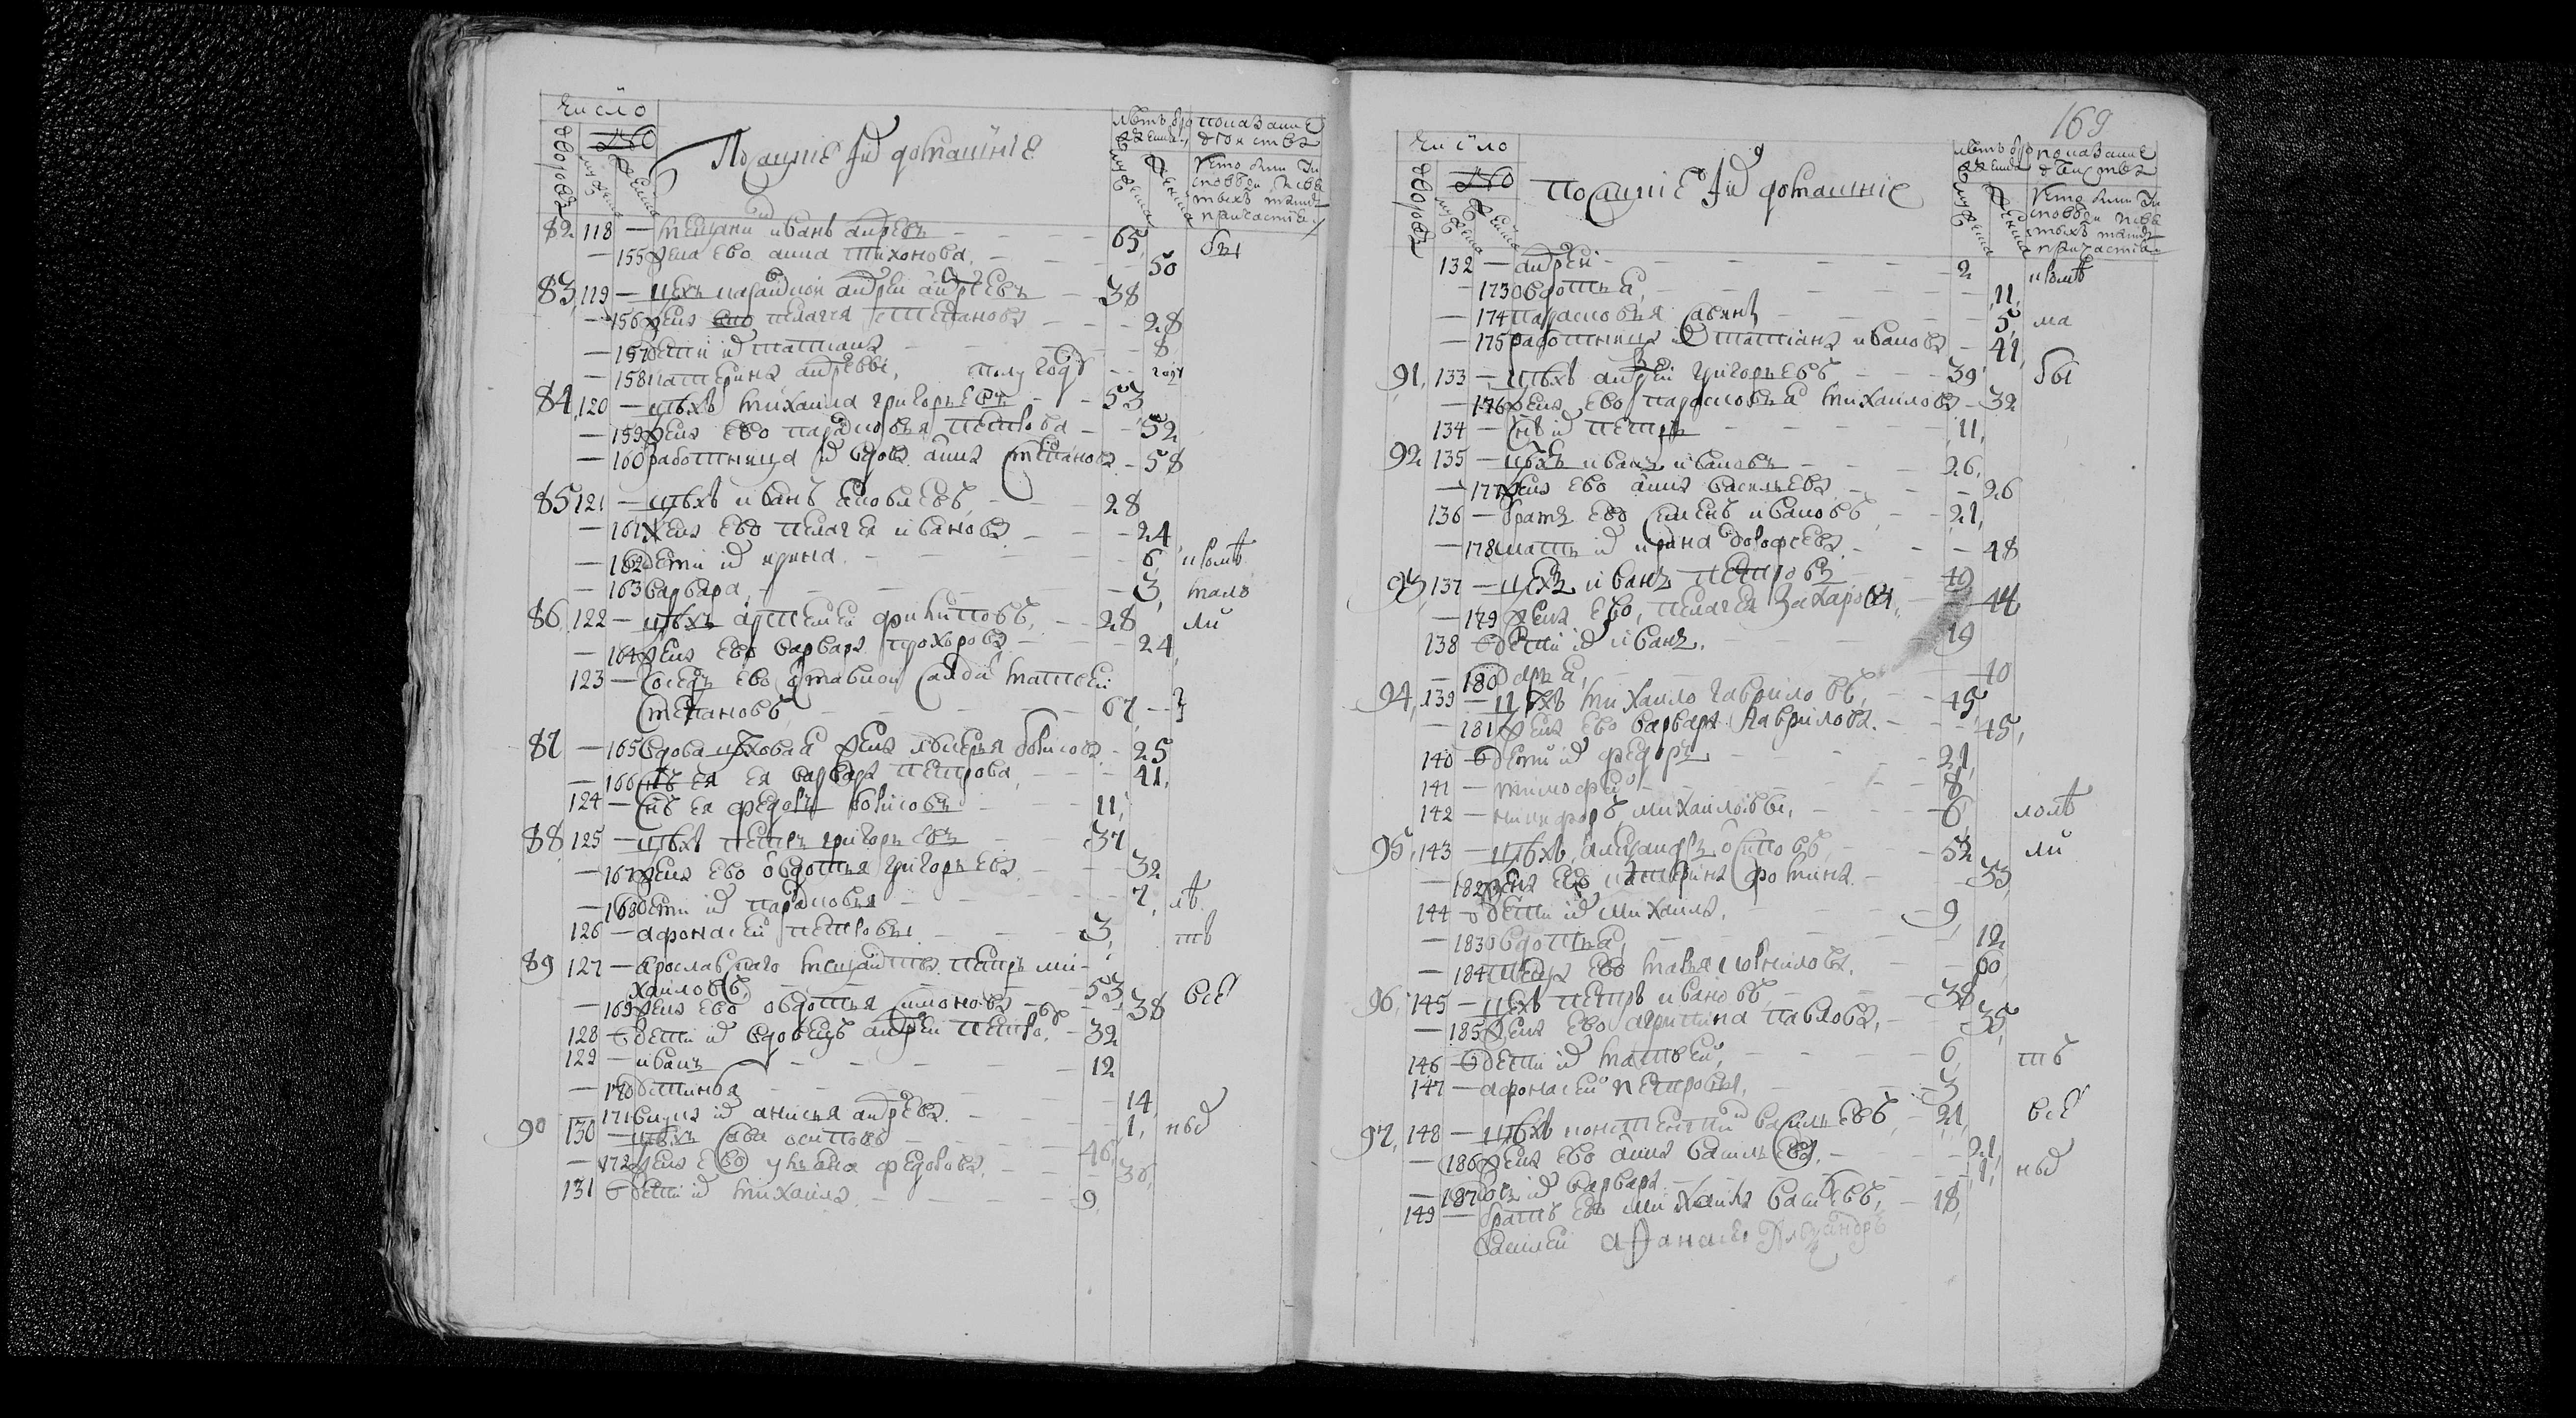 Число
дворовъ
мужеска
женска
Посацкие и домашние их
лѣтъ от рожения
мужеска
женска
показание действ
кто были у исповеди и святыхъ таинъ причастия
82 118 — мещанин иванъ андреевъ — 65 бы
— 155 жена ево анна тихонова — 50
83 119 — цехъ андрей андреевъ — 38
— 156 жена ево пелагея степанова — 28
— 157 дети их татиана — 8
— 158 катерина андреевы, полу году — году
84 120 — цѣхъ михаила григорьевъ — 53
— 159 жена ево парасковья петрова — 52
— 160 работница их вдова анна степанова — 58
85 121 — цѣхъ иванъ яковлевъ — 28
— 161 жена ево пелагея иванова — 24
— 162 дети их ирина — 6, иютѣ
— 163 варвара — 3, мало
86 122 — цѣхъ артемей филиповъ, — 28 ли
— 164 жена ево варвара прохорова — 24
123 — соседъ ево матвей
степановъ — 67
87 — 165 вдова цѣховая жена борисова — 25
— 166 ея варвара петрова — 41
124 — снъ ея федоръ борисовъ — 11
88 125 — цѣхъ петръ григорьевъ — 37
— 167 жена ево овдотья григорьева — 32
— 168 дети их парасковья — 7, лѣ
126 — афонасей петровы — 3, тв
89 127 — Ярославскаго петръ ми-
хаиловъ, — 53 все
— 169 жена ево овдотья симонова — 38
128 — дети их вдовецъ андрей петровъ — 32
129 — иванъ — 12
— 170 устинья — 14
— 171 внука их анисья андреева — 1, ные
90 130 — цѣхъ сава осиповъ — 46
— 172 жена ево ульяна федорова, — 36
131 — дети их михаила — 9
169
Число
дворовъ
мужеска
женска
посацкие и домашние их
лѣтъ от рожения
мужеска
женска
показание действ
кто были у исповеди и святыхъ таинъ причастия
132 — андрей — 2 иютѣ
— 173 овдотья, — 11
— 174 парасковья савины — 5, ма
— 175 работница их татиана иванова — 41
91 133 — цѣхъ андрей григорьевъ — 39 бы
— 176 жена ево парасковья михаилова — 32
134 — снъ их петръ — 11
92 135 — цѣхъ иванъ ивановъ — 26
— 177 жена ево анна васильева — 26
136 — братъ ево семенъ ивановъ — 21
— 178 мать их ирина дорофеева — 48
93 137 — цехъ иванъ петровъ — 49
— 179 жена ево, пелагея захарова — 44
138 — дети их иванъ. — 19
— 180 дарья, — 10
94 139 — цѣхъ михаило гавриловъ, — 45
— 181 жена ево варвара гаврилова — 45
140 — дети их федоръ — 21
141 — тимофей — 8
142 — никифоръ михаиловы, — 6, лолѣ
95 143 — цѣхъ александръ осиповъ — 52 ли
— 182 жена ево катерина фомина — 53
144 — дети их михаила, — 9
— 183 овдотья, — 12
— 184 теща ево марья корнилова — 60
96 145 — цехъ петръ ивановъ, — 38
— 185 жена ево агрипина павлова, — 35
146 — дети их матвей, — 6 тв
147 — афонасей петровы, — 3
97 148 — цѣхъ василевъ — 21 все
— 186 жена ево анна василева, — 21
— 187 дочь их варвара — 1, ные
149 — братъ ево михаила василевъ, — 18
василей афанасей